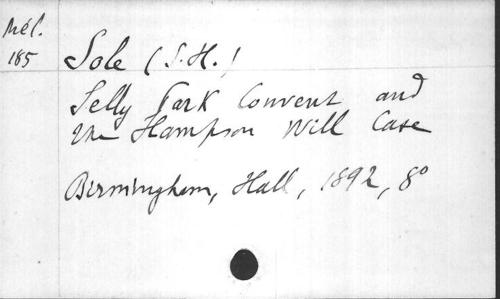 Mél.
185
Sole (S.H.)
Selly Park Convent and
the Hampson Will Case
Birmingham, Hall, 1892, 8°